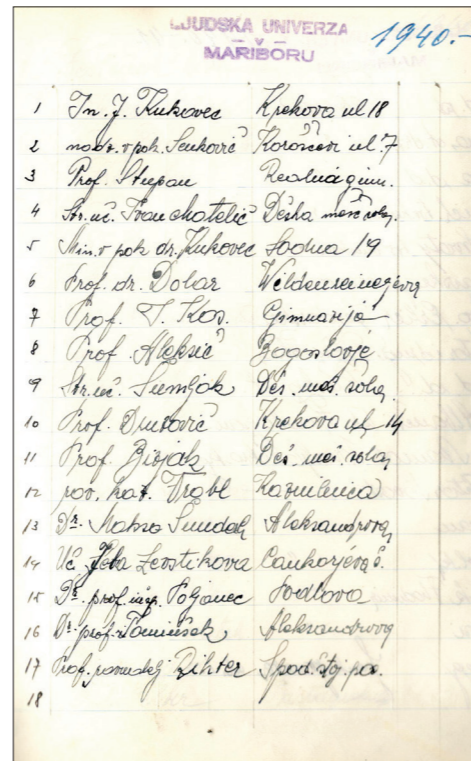 LJUDSKA UNIVERZA
V
MARIBORU
1940.-
1 In. J. Kukovec Krekova ul 18
2 nadz. v pok. Senkovič Koroščevi ul. 7
3 Prof. Stupan Realna gimn.
4 Str. uč. Ivan Matelič Deška mešč. šola
5 Min. v pok. dr. Kukovec Sodna 19
6 Prof. dr. Dolar Wildenreinerjeva
7 Prof. T. Kos. Gimnazija
8 Prof. Aleksič Bogoslovje
9 Str. uč. Šumljak Deš. meš. šola
10 Prof. Druzovič Krekova ul. 14
11 Prof. Bizjak Deš. meš. šola
12 pov. kat. Vrabl Kaznilnica
13 Dr. Makso Šnuderl Aleksandrova
14 Uč. Jela Levstikova Cankarjeva š.
15 Dr. prof. Poljanec
16 Dr. prof. Tominšek Aleksandrova
17 Prof. Rihter
18